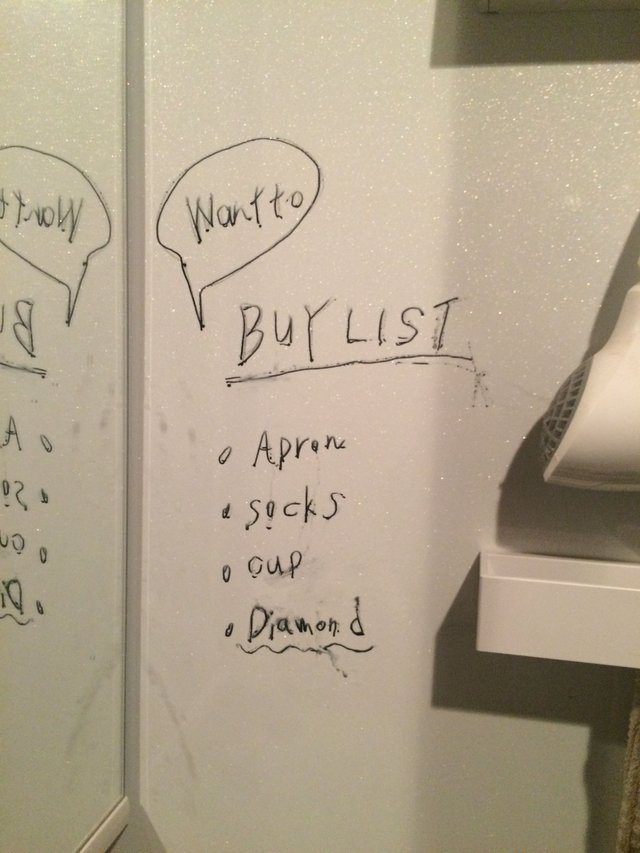 Want to
BUY LIST
Apron
socks
cup
Diamond